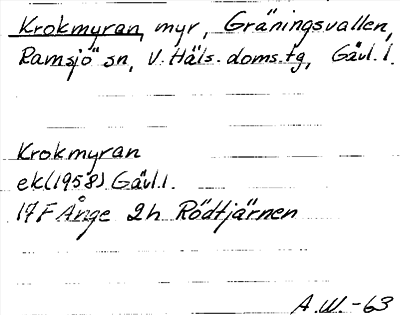 Krokmyran, myr, Gräningsvallen,
Ramsjö sn, V. Häls. doms.tg, Gävl. l.
Krokmyran
ek(1958) Gävl. l.
17F Ånge 2h Rödtjärnen
A.W.-63